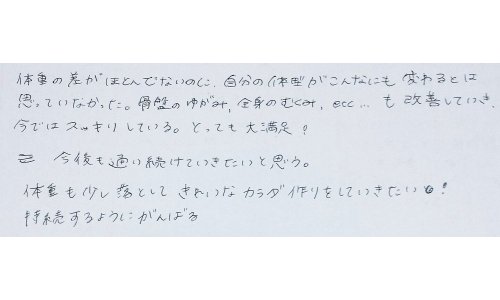 体重の差がほとんどないのに、自分の体型がこんなにも変わるとは
思っていなかった。骨盤のゆがみ、全身のむくみ、etc... も改善していき、
今ではスッキリしている。とっても大満足！
今後も通い続けていきたいと思う。
体重も少し落として きれいなカラダ作りをしていきたい！
持続するようにがんばる